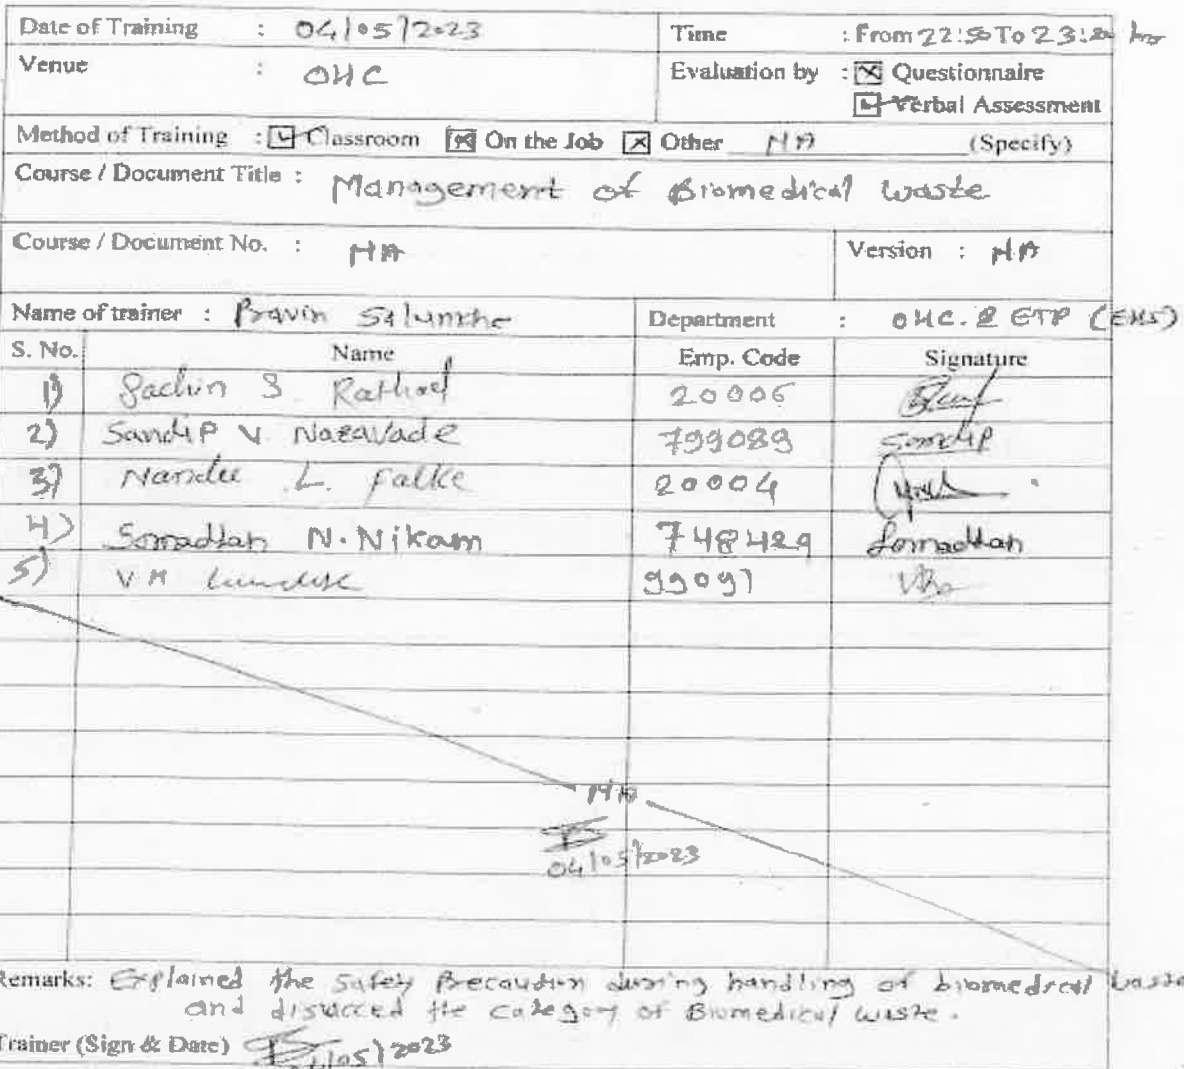 Date of Training : 04/05/2023 Time : From 22:50 To 23:20 hrs
Venue : OHC Evaluation by : ☒ Questionnaire
☑ Verbal Assessment
Method of Training : ☑ Classroom ☒ On the Job ☒ Other NA (Specify)
Course / Document Title : Management of Biomedical waste
Course / Document No. : NA Version : NA
Name of trainer : Pravin Salunkhe Department : OHC & ETP (EHS)
S. No. Name Emp. Code Signature
1) Sachin S. Rathod 20006
2) Sandip V Nazavade 799089 Sandip
3) Nandu L. Falke 20004
4) Somadhan N. Nikam 748429 Somadhan
5) V M 99091
NA
04/05/2023
Remarks: Explained the Safety Precaution during handling of biomedical waste
and discuced the category of Biomedical waste.
Trainer (Sign & Date) 04/05/2023